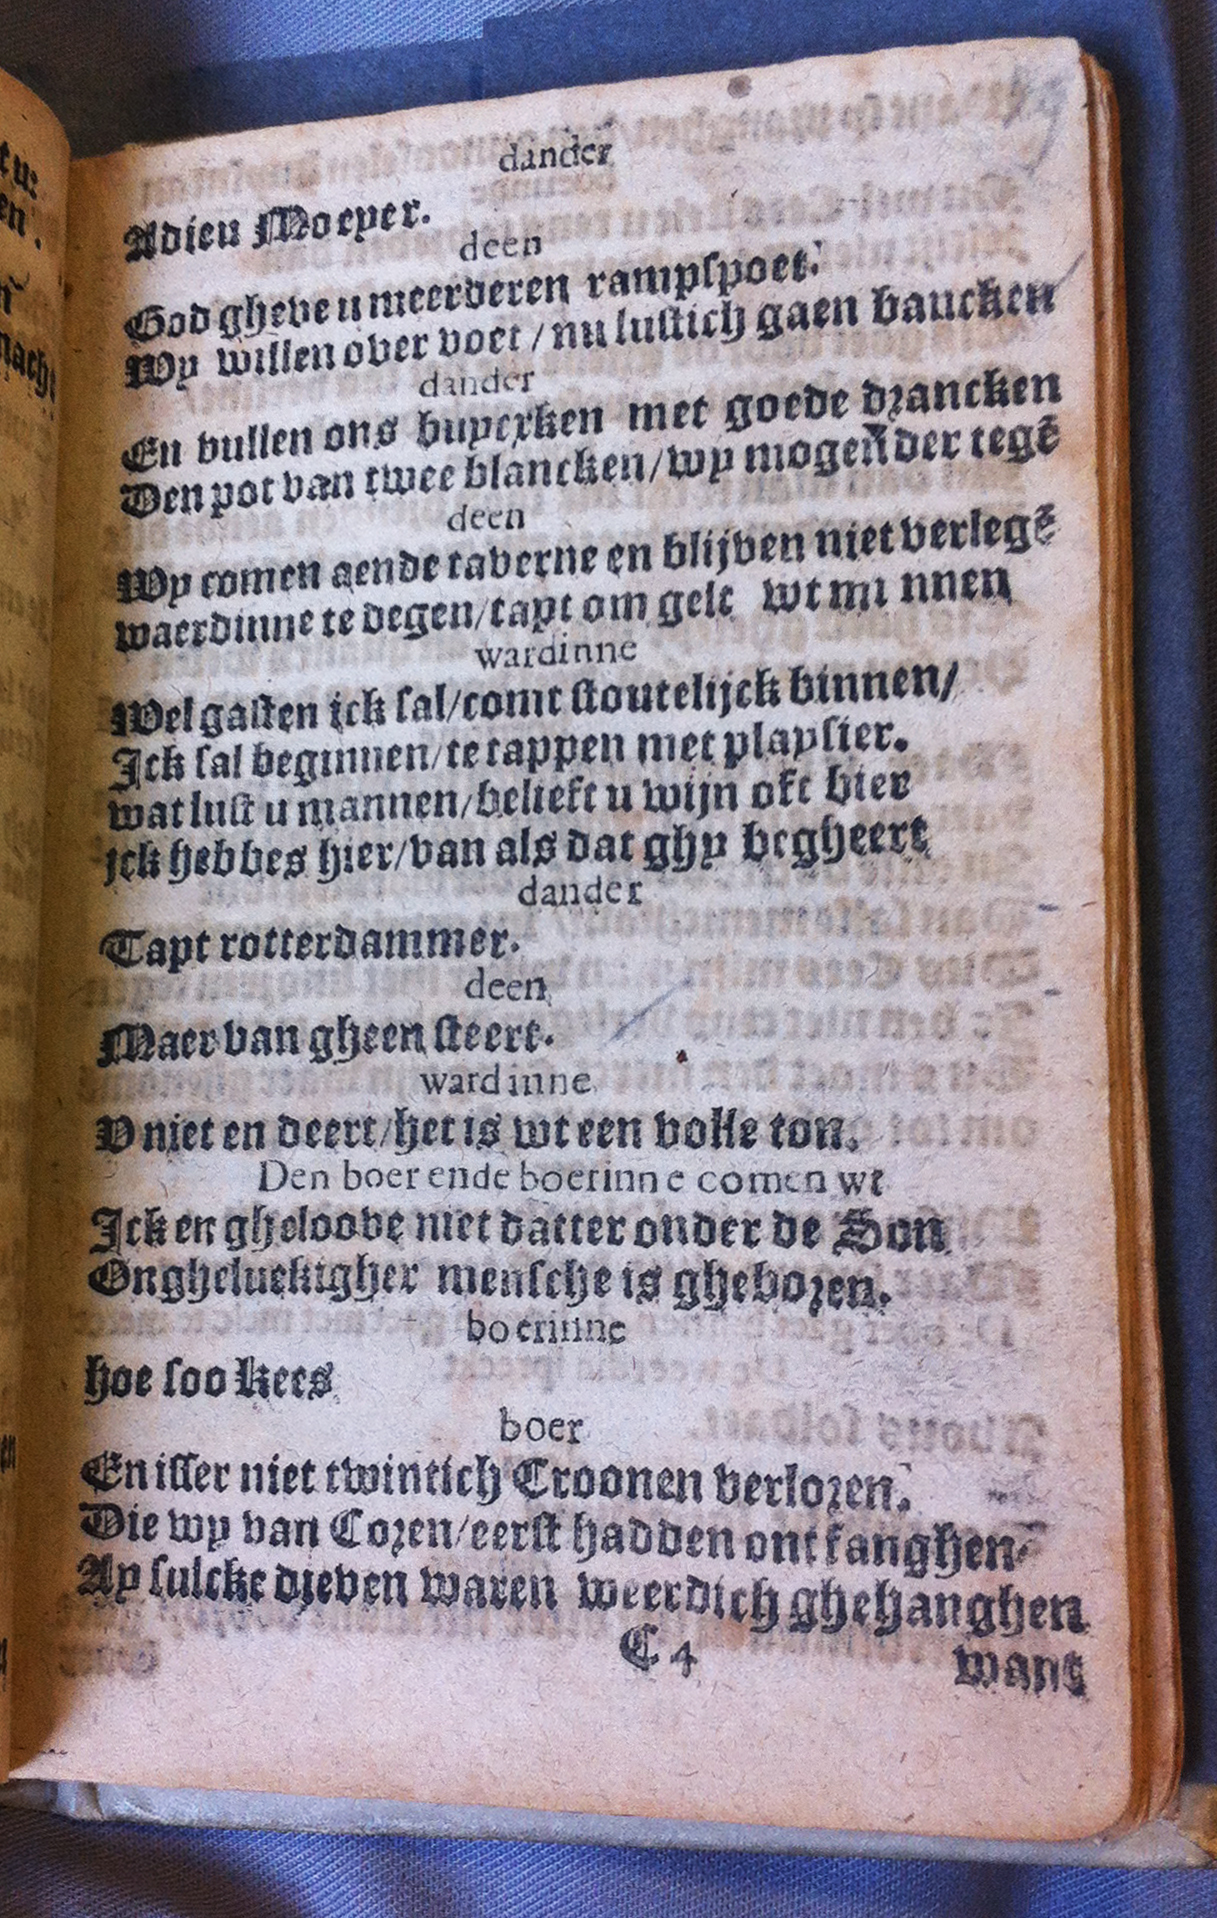 dander
Adieu Moeyer.
deen
God gheve u meerderen rampspoet.
Wy willen over voet / nu lustich gaen bancken
dander
En vullen ons buyexken met goede drancken
Den pot van twee blancken/wy mogen̄ der tegē
deen
Wy comen aende taverne en blijven niet verlegē
waerdinne te degen/tapt om gelt wt minnen
wardinne
Wel gasten ick sal/comt stoutelijck binnen/
Ick sal beginnen/te tappen met playsier.
wat lust u mannen/belieft u wijn oft bier
ick hebbes hier/van als dat ghy begheert
dander
Tapt rotterdammer.
deen
Maer van gheen steert.
wardinne
V niet en deert/het is wt een volle ton.
Den boer ende boerinne comen wt
Ick en gheloove niet datter onder de Son
Ongheluckigher mensche is gheboren.
boerinne
hoe soo kees
boer
En isser niet twintich Croonen verloren.
Die wy van Coren/eerst hadden ontfanghen
Ay sulcke dieven waren weerdich ghehanghen
C 4
want